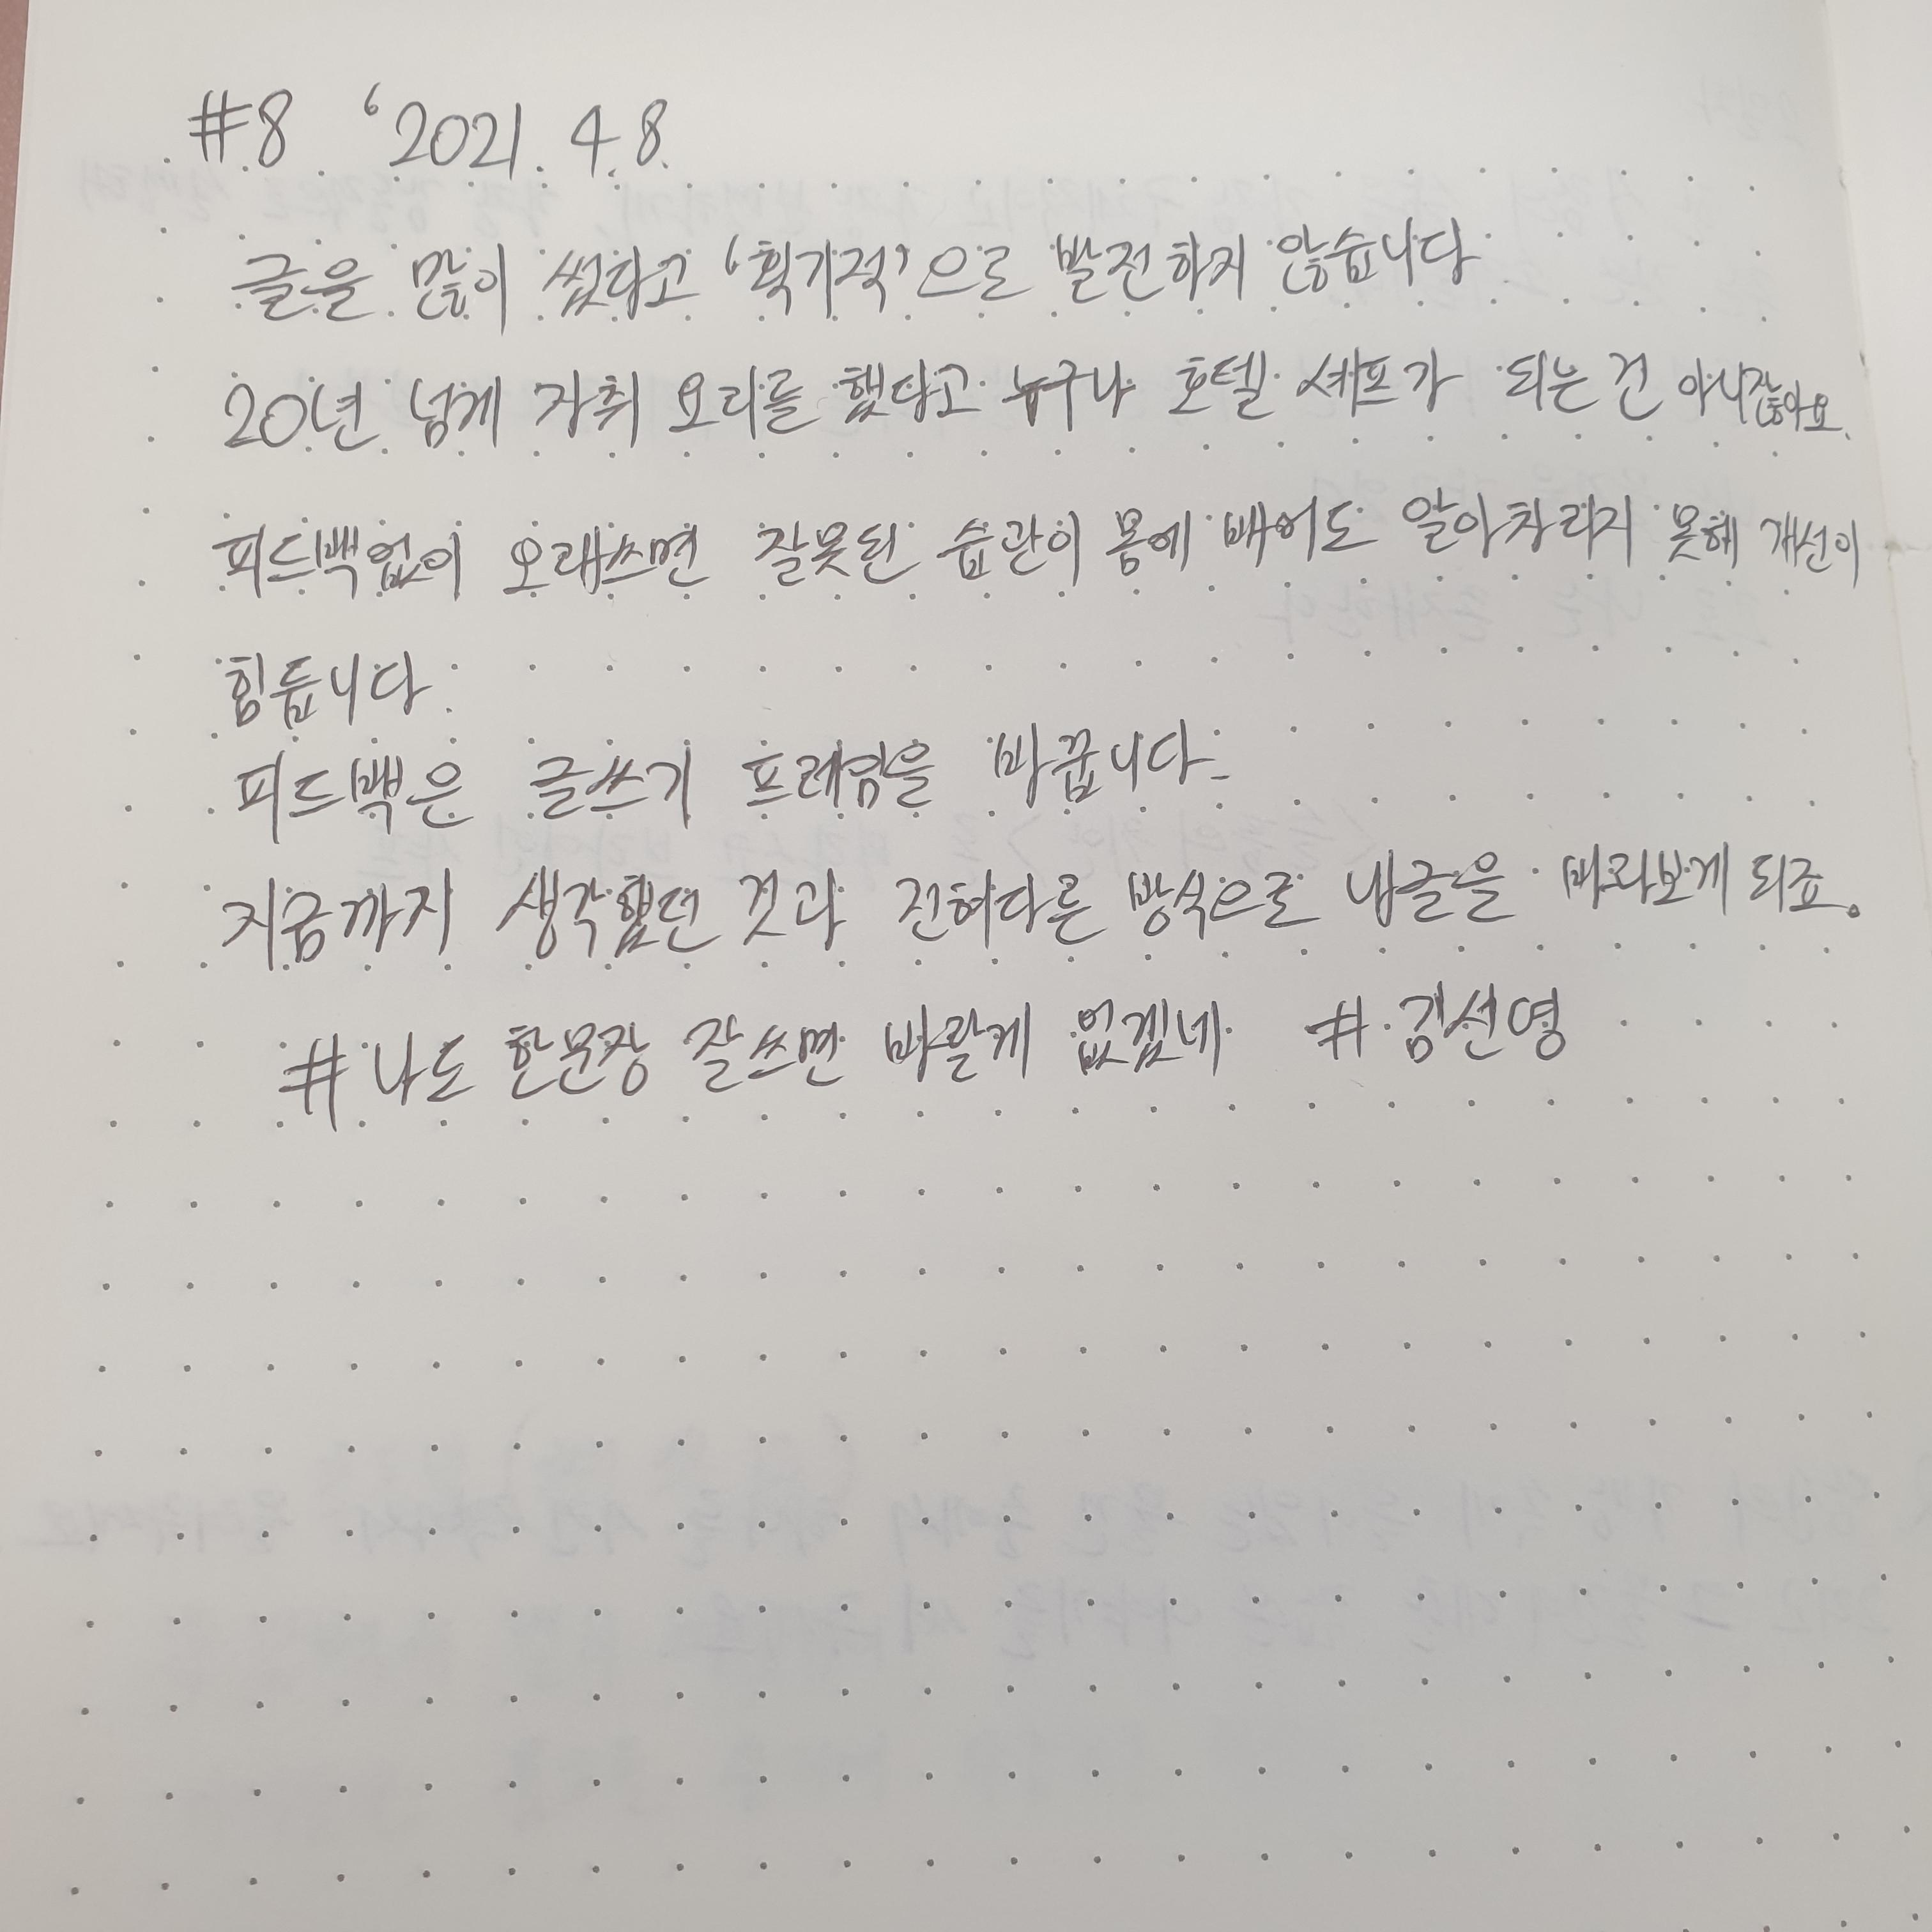 #8 '2021. 4. 8.
글을 많이 썼다고 '획기적'으로 발전하지 않습니다
20년 넘게 자취 요리를 했다고 누구나 호텔 셰프가 되는 건 아니잖아요.
피드백없이 오래쓰면 잘못된 습관이 몸에 배어도 알아차리지 못해 개선이
힘듭니다.
피드백은 글쓰기 프레임을 바꿉니다.
지금까지 생각했던 것과 전혀다른 방식으로 내글을 바라보게 되죠.
#나도 한문장 잘쓰면 바랄게 없겠네 #김선영